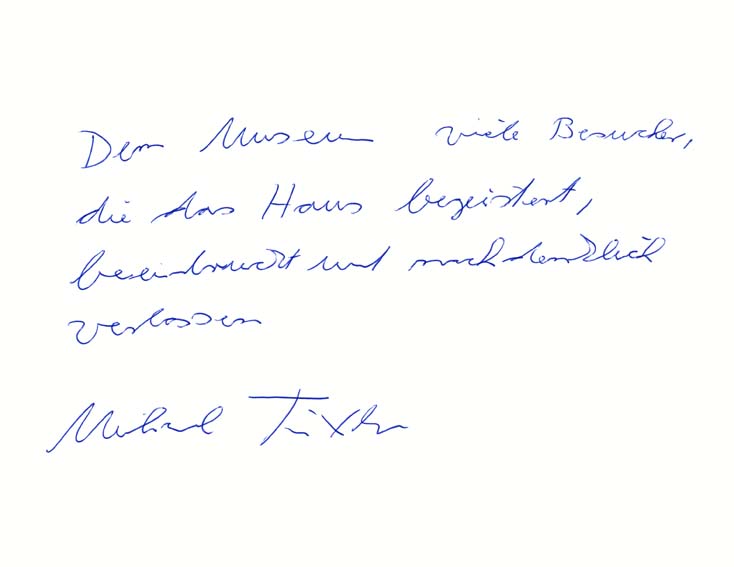 Dem Museum viele Besucher,
die das Haus begeistert,
beeindruckt und nachdenklich
verlassen
Michael